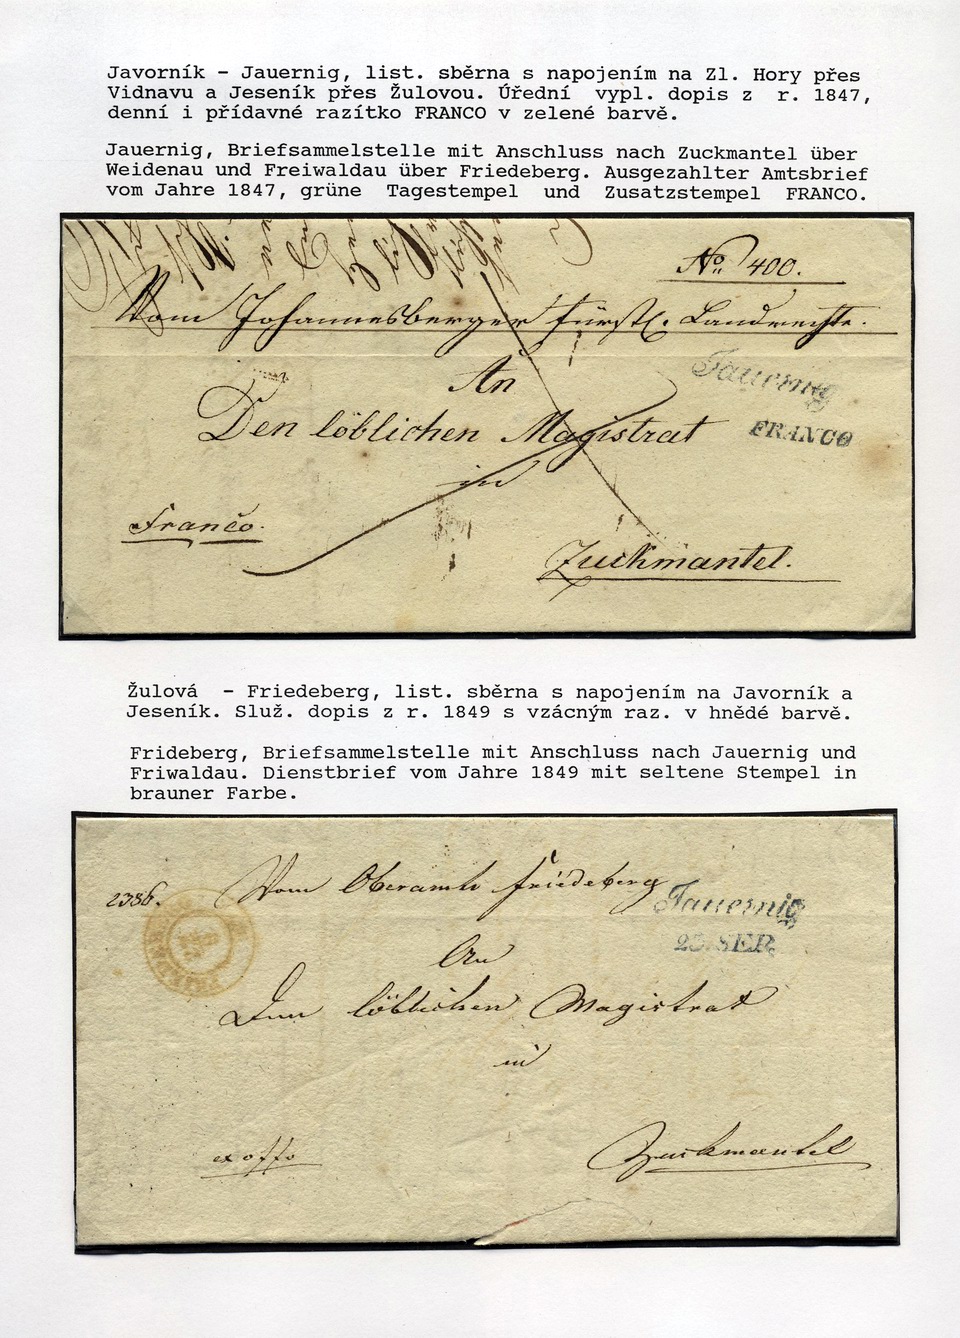 Javorník – Jauernig, list. sběrna s napojením na Zl. Hory přes
Vidnavu a Jeseník přes Žulovou. Úřední vypl. dopis z r. 1847,
denní i přídavné razítko FRANCO v zelené barvě.
Jauernig, Briefsammelstelle mit Anschluss nach Zuckmantel über
Weidenau und Freiwaldau über Friedeberg. Ausgezahlter Amtsbrief
vom Jahre 1847, grüne Tagestempel und Zusatzstempel FRANCO.
No. 400.
Vom Johannesberger fürstl. Landrechte.
An
Jauernig
Den löblichen Magistrat
FRANCO
in
Franco.
Zuckmantel.
Žulová – Friedeberg, list. sběrna s napojením na Javorník a
Jeseník. Služ. dopis z r. 1849 s vzácným raz. v hnědé barvě.
Frideberg, Briefsammelstelle mit Anschluss nach Jauernig und
Friwaldau. Dienstbrief vom Jahre 1849 mit seltene Stempel in
brauner Farbe.
2386.
Vom Oberamte Friedeberg
Jauernig
SEP.
An
Den löblichen Magistrat
in
ex offo
Zuckmantel